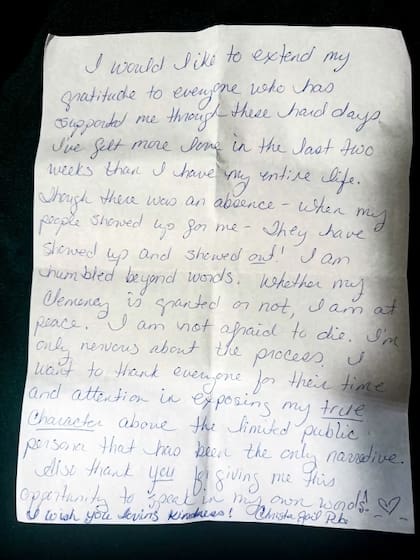 I would like to extend my
gratitude to everyone who has
supported me through these hard days
I've felt more love in the last two
weeks than I have my entire life.
Though there was an absence - when my
people showed up for me - They have
showed up and showed out! I am
humbled beyond words. Whether my
Clemency is granted or not, I am at
peace. I am not afraid to die. I'm
only nervous about the process. I
want to thank everyone for their time
and attention in exposing my true
Character above the limited public
persona that has been the only narrative.
Also thank you for giving me this
opportunity to speak in my own words!
I wish you loving kindness! Christa Gail